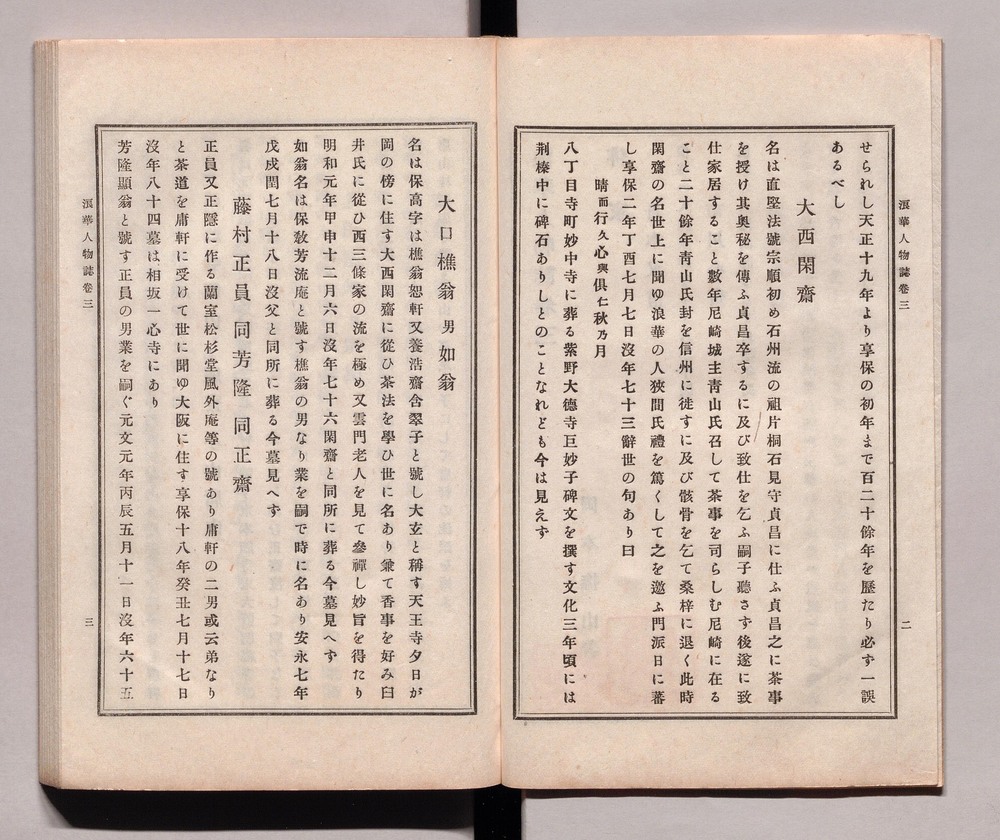 浪華人物誌卷三
二
せられし天正十九年より享保の初年まで百二十餘年を歷たり必ず一誤
あるべし
大西閑齋
名は直堅法號宗順初め石州流の祖片桐石見守貞昌に仕ふ貞昌之に茶事
を授け其奧秘を傳ふ貞昌卒するに及び致仕を乞ふ嗣子聽さず後遂に致
仕家居すること數年尼崎城主靑山氏召して茶事を司らしむ尼崎に在る
こと二十餘年靑山氏封を信州に徙すに及び骸骨を乞て桑梓に退く此時
閑齋の名世上に聞ゆ浪華の人狹間氏禮を篤くして之を邀ふ門派日に蕃
し享保二年丁酉七月七日沒年七十三辭世の句あり曰
晴而行久心與俱仁秋乃月
八丁目寺町妙中寺に葬る紫野大德寺巨妙子碑文を撰す文化三年頃には
荆榛中に碑石ありしとのことなれども今は見えず
大口樵翁 男如翁
名は保高字は樵翁恕軒又養浩齋含翠子と號し大玄と稱す天王寺夕日が
岡の傍に住す大西閑齋に從ひ茶法を學ひ世に名あり兼て香事を好み臼
井氏に從ひ西三條家の流を極め又雲門老人を見て參禪し妙旨を得たり
明和元年甲申十二月六日沒年七十六閑齋と同所に葬る今墓見へず
如翁名は保敎芳流庵と號す樵翁の男なり業を嗣で時に名あり安永七年
戊戌閏七月十八日沒父と同所に葬る今墓見へず
藤村正員 同芳隆 同正齋
正員又正隱に作る蘭室松杉堂風外庵等の號あり庸軒の二男或云弟なり
と茶道を庸軒に受けて世に聞ゆ大阪に住す享保十八年癸丑七月十七日
沒年八十四墓は相坂一心寺にあり
芳隆顯翁と號す正員の男業を嗣ぐ元文元年丙辰五月十一日沒年六十五
浪華人物誌卷三
三